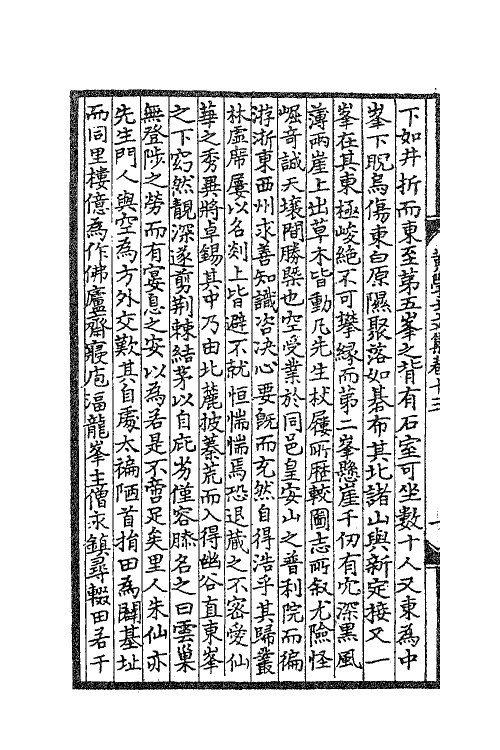 下如井折而東至第五峯之背有石室可坐數十人又東為中
峯下睨烏傷東白原隰聚落如碁布其北諸山與新定接又一
峯在其東極峻絕不可攀緣而第二峯懸崖千仞有穴深黑風
薄兩崖上出草木皆動凡先生杖屨所歷較圖志所敘尤險怪
崛奇誠天壤間勝槩也空受業於同邑皇安山之普利院而徧
游浙東西州求善知識咨決心要旣而充然自得浩乎其歸叢
林虛席屢以名剡上皆避不就恒惴惴焉恐退藏之不密愛仙
華之秀異將卓錫其中乃由北麓披蓁荒而入得幽谷直東峯
之下窈然靚深遂剪荆棘結茅以自庇劣僅容膝名之曰雲巢
無登陟之勞而有宴息之安以為居是不啻足矣里人朱仙亦
先生門人與空為方外交歎其自處太褊陋首捐田為闢基址
而同里樓億為作佛廬齋寢庖湢龍峯主僧永鎮尋輟田若干
黃學士文集卷十三